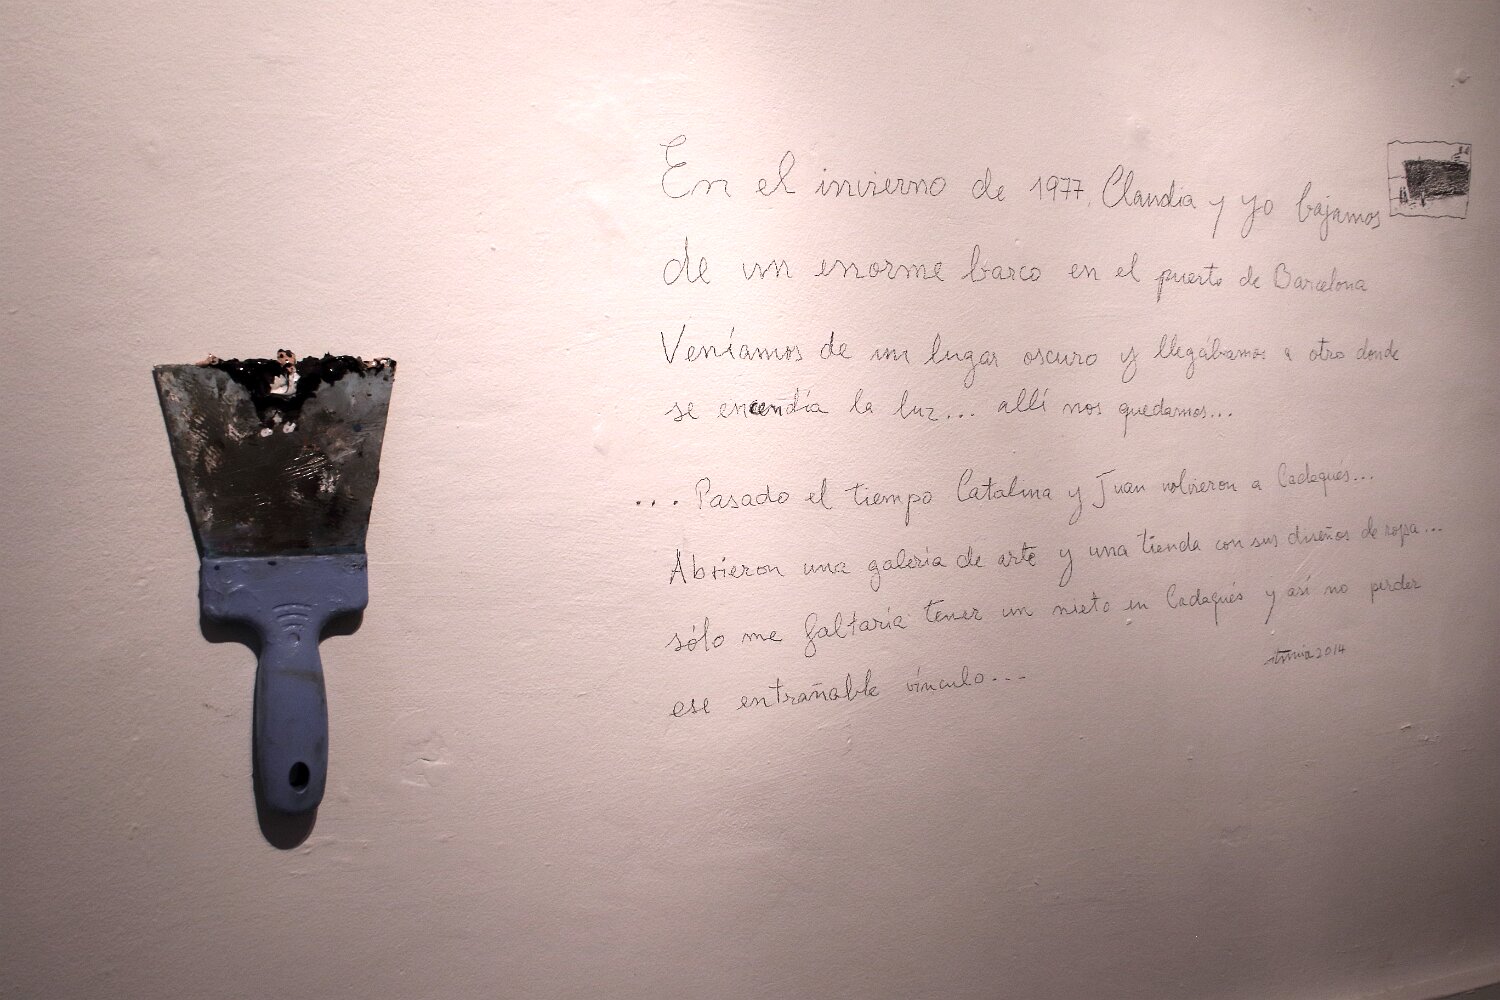 En el invierno de 1977, Claudia y yo bajamos
de un enorme barco en el puerto de Barcelona
Veníamos de un lugar oscuro y llegábamos a otro donde
se encendía la luz... allí nos quedamos...
... Pasado el tiempo Catalina y Juan volvieron a Cadaqués...
Abrieron una galería de arte y una tienda con sus diseños de ropa...
sólo me faltaría tener un nieto en Cadaqués y así no perder
ese entrañable vínculo...
2014